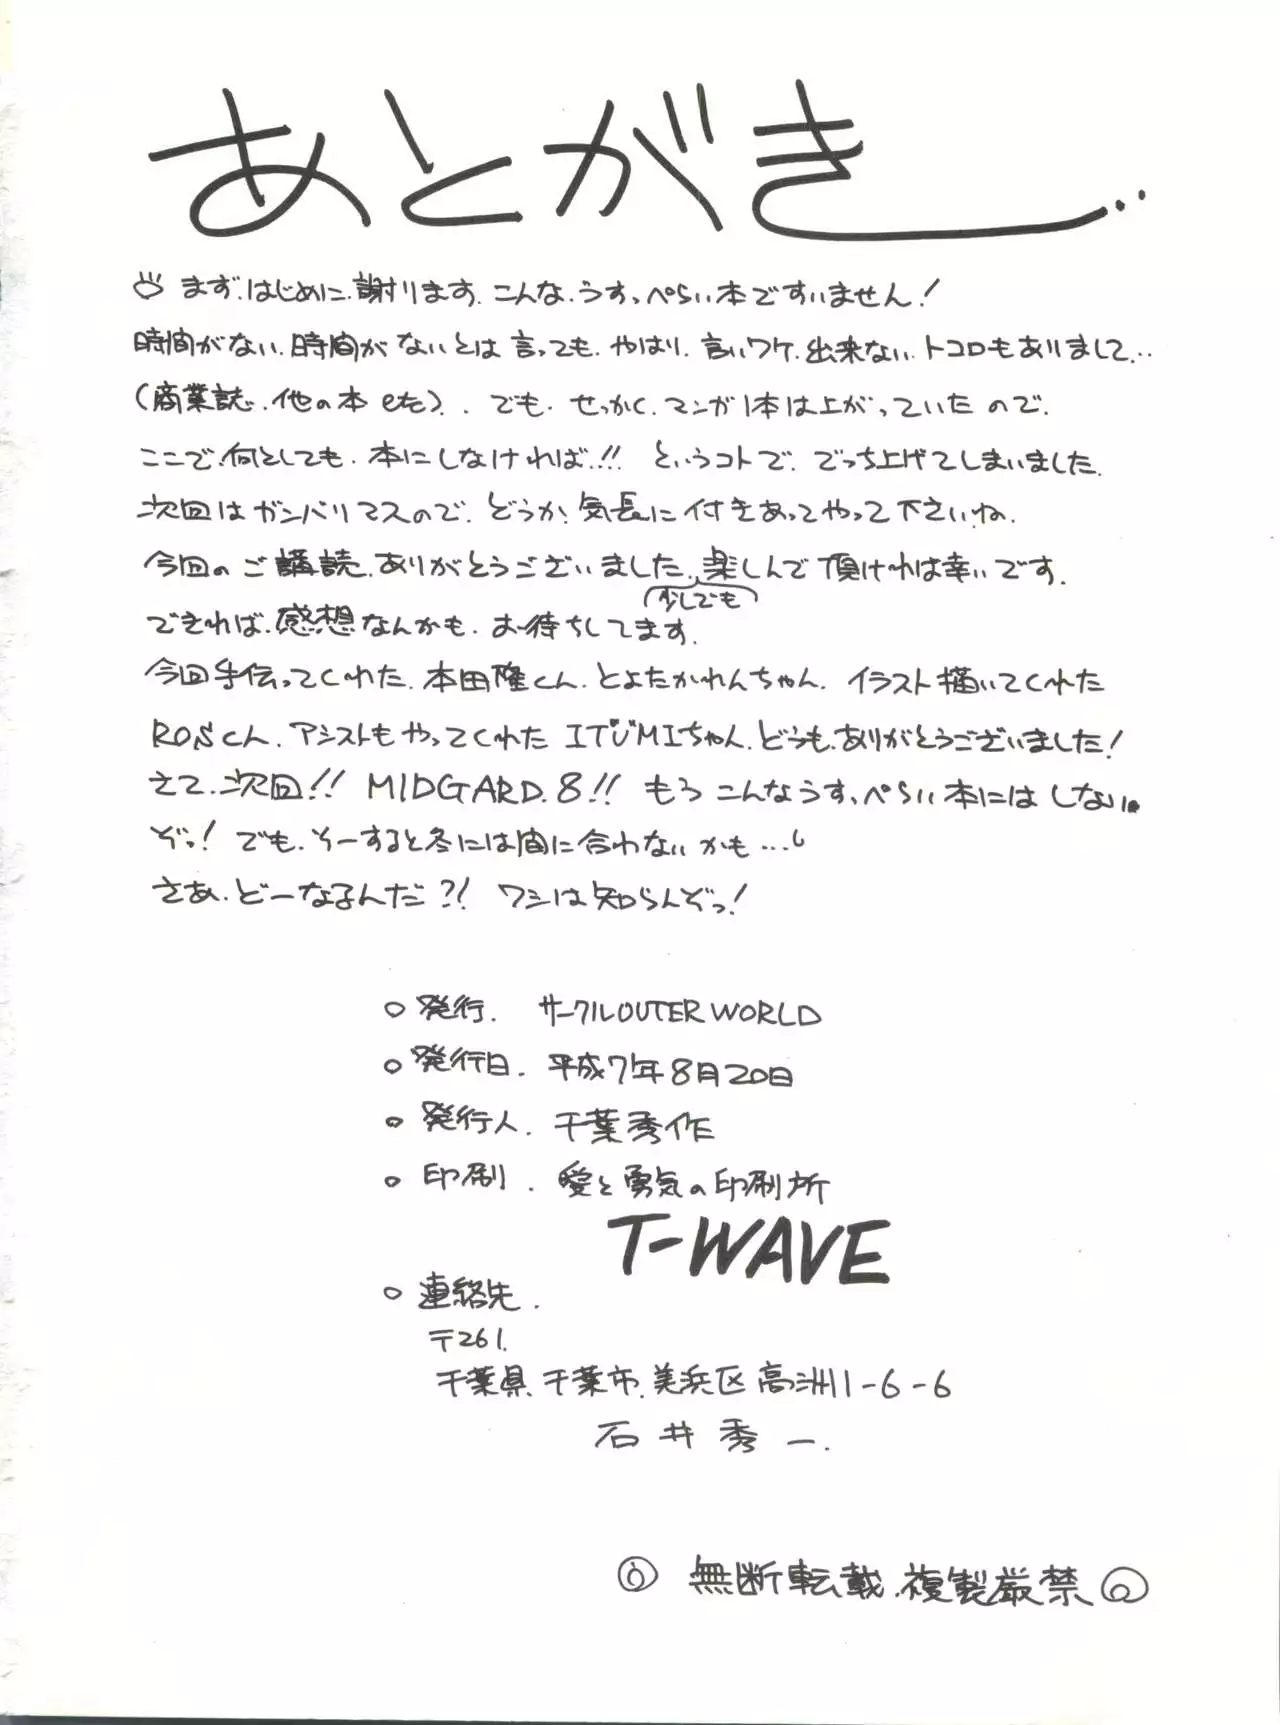 あとがき...
まず、はじめに、謝ります。こんな、うすっぺらい本ですいません!
時間がない、時間がないとは言っても、やはり、言いワケ、出来ない、トコロもありまして...
(商業誌、他の本etc)、でも、せっかく、マンガ1本は上がっていたので、
ここで、何としても、本にしなければ..!! というコトで、でっち上げてしまいました。
次回はガンバリマスので、どうか、気長に付きあってやって下さいね。
今回のご購読、ありがとうございました、楽しんで頂ければ幸いです。
(少しでも)
できれば、感想なんかも、お待ちしてます。
今回手伝ってくれた、本田隆くん、とよたかれんちゃん、イラスト描いてくれた
ROSくん、アシストもやってくれたITUMIちゃん、どうも、ありがとうございました!
さて、次回!! MIDGARD.8!! もうこんなうすっぺらい本にはしない
ぞっ! でも、そーすると冬には間に合わないかも...
さあ、どーなるんだ?! ワシは知らんぞっ!
○発行. サークルOUTER WORLD
○発行日. 平成7年8月20日
○発行人. 千葉秀作
○印刷. 愛と勇気の印刷所
T-WAVE
○連絡先.
〒261.
千葉県、千葉市、美浜区高洲1-6-6
石井秀一.
無断転載、複製厳禁